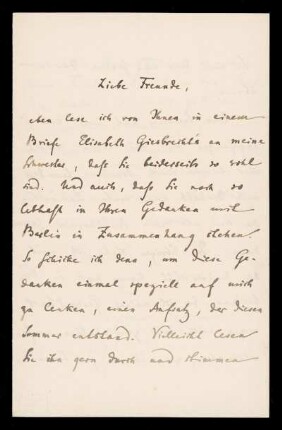 Liebe Freunde,
eben lese ich von Ihnen in einem
Briefe Elisabeth Giesbrechts an meine
Schwester, daß Sie beiderseits so wohl
sind. Und auch, daß Sie noch so
lebhaft in Ihren Gedanken mit
Berlin in Zusammenhang stehen.
So schicke ich denn, um diese Ge-
danken einmal speziell auf mich
zu lenken, einen Aufsatz, der diesen
Sommer entstand. Vielleicht lesen
Sie ihn gern durch und stimmen